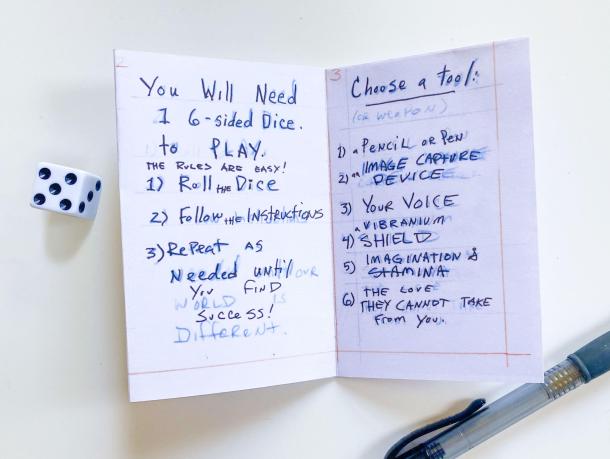 2
You Will Need
1 6-sided Dice.
to PLAY.
THE RULES ARE EASY!
1) Roll THE Dice
2) Follow THE Instructions
3) Repeat AS
Needed until OUR
You FIND
WORLD IS
Success!
Different.
3
Choose a tool:
(or weapon)
1) a PENCIL OR PEN
2) an IMAGE CAPTURE
DEVICE
3) YOUR VOICE
a VIBRANIUM
4) SHIELD
5) IMAGINATION &
STAMINA
6) THE LOVE
THEY CANNOT TAKE
From You.